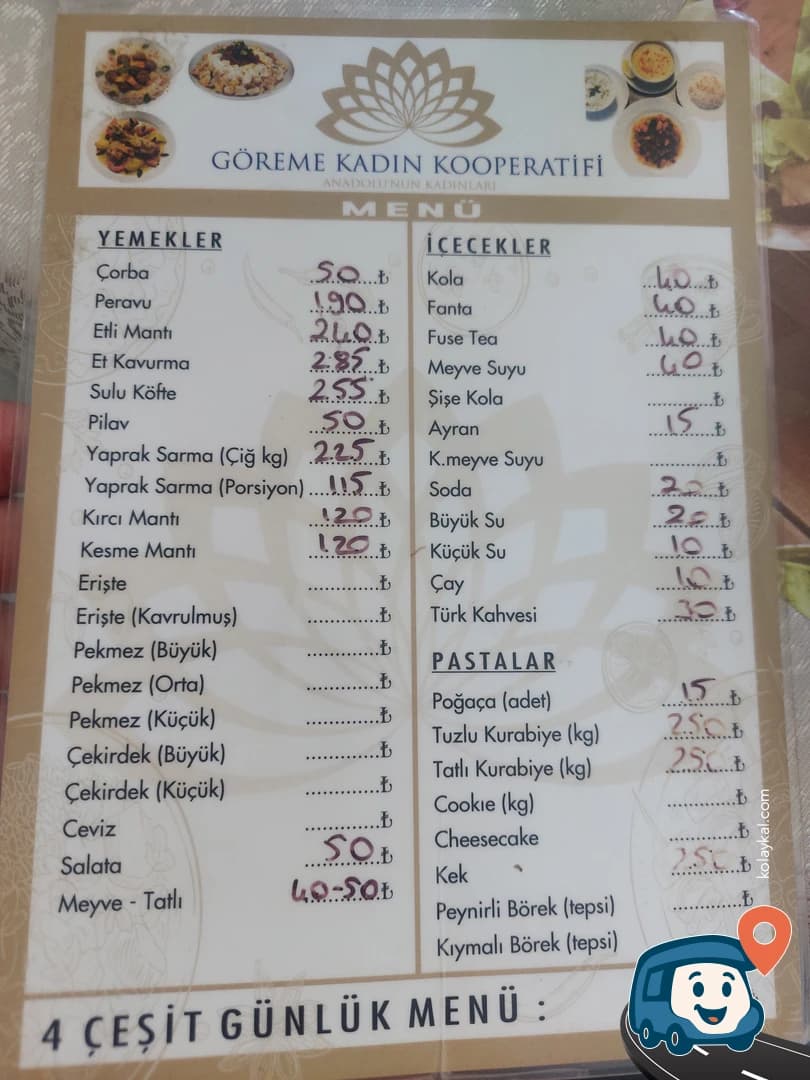 GÖREME KADIN KOOPERATİFİ
ANADOLU'NUN KADINLARI
MENÜ
YEMEKLER
Çorba 50 ₺
Peravu 190 ₺
Etli Mantı 240 ₺
Et Kavurma 285 ₺
Sulu Köfte 255 ₺
Pilav 50 ₺
Yaprak Sarma (Çiğ kg) 225 ₺
Yaprak Sarma (Porsiyon) 115 ₺
Kırcı Mantı 120 ₺
Kesme Mantı 120 ₺
Erişte ₺
Erişte (Kavrulmuş) ₺
Pekmez (Büyük) ₺
Pekmez (Orta) ₺
Pekmez (Küçük) ₺
Çekirdek (Büyük) ₺
Çekirdek (Küçük) ₺
Ceviz ₺
Salata 50 ₺
Meyve - Tatlı 40-50 ₺
İÇECEKLER
Kola 40 ₺
Fanta 40 ₺
Fuse Tea 40 ₺
Meyve Suyu 40 ₺
Şişe Kola ₺
Ayran 15 ₺
K.meyve Suyu ₺
Soda 20 ₺
Büyük Su 20 ₺
Küçük Su 10 ₺
Çay 10 ₺
Türk Kahvesi 30 ₺
PASTALAR
Poğaça (adet) 15 ₺
Tuzlu Kurabiye (kg) 250 ₺
Tatlı Kurabiye (kg) 250 ₺
Cookıe (kg) ₺
Cheesecake ₺
Kek 250 ₺
Peynirli Börek (tepsi) ₺
Kıymalı Börek (tepsi)
4 ÇEŞİT GÜNLÜK MENÜ :
kolaykal.com